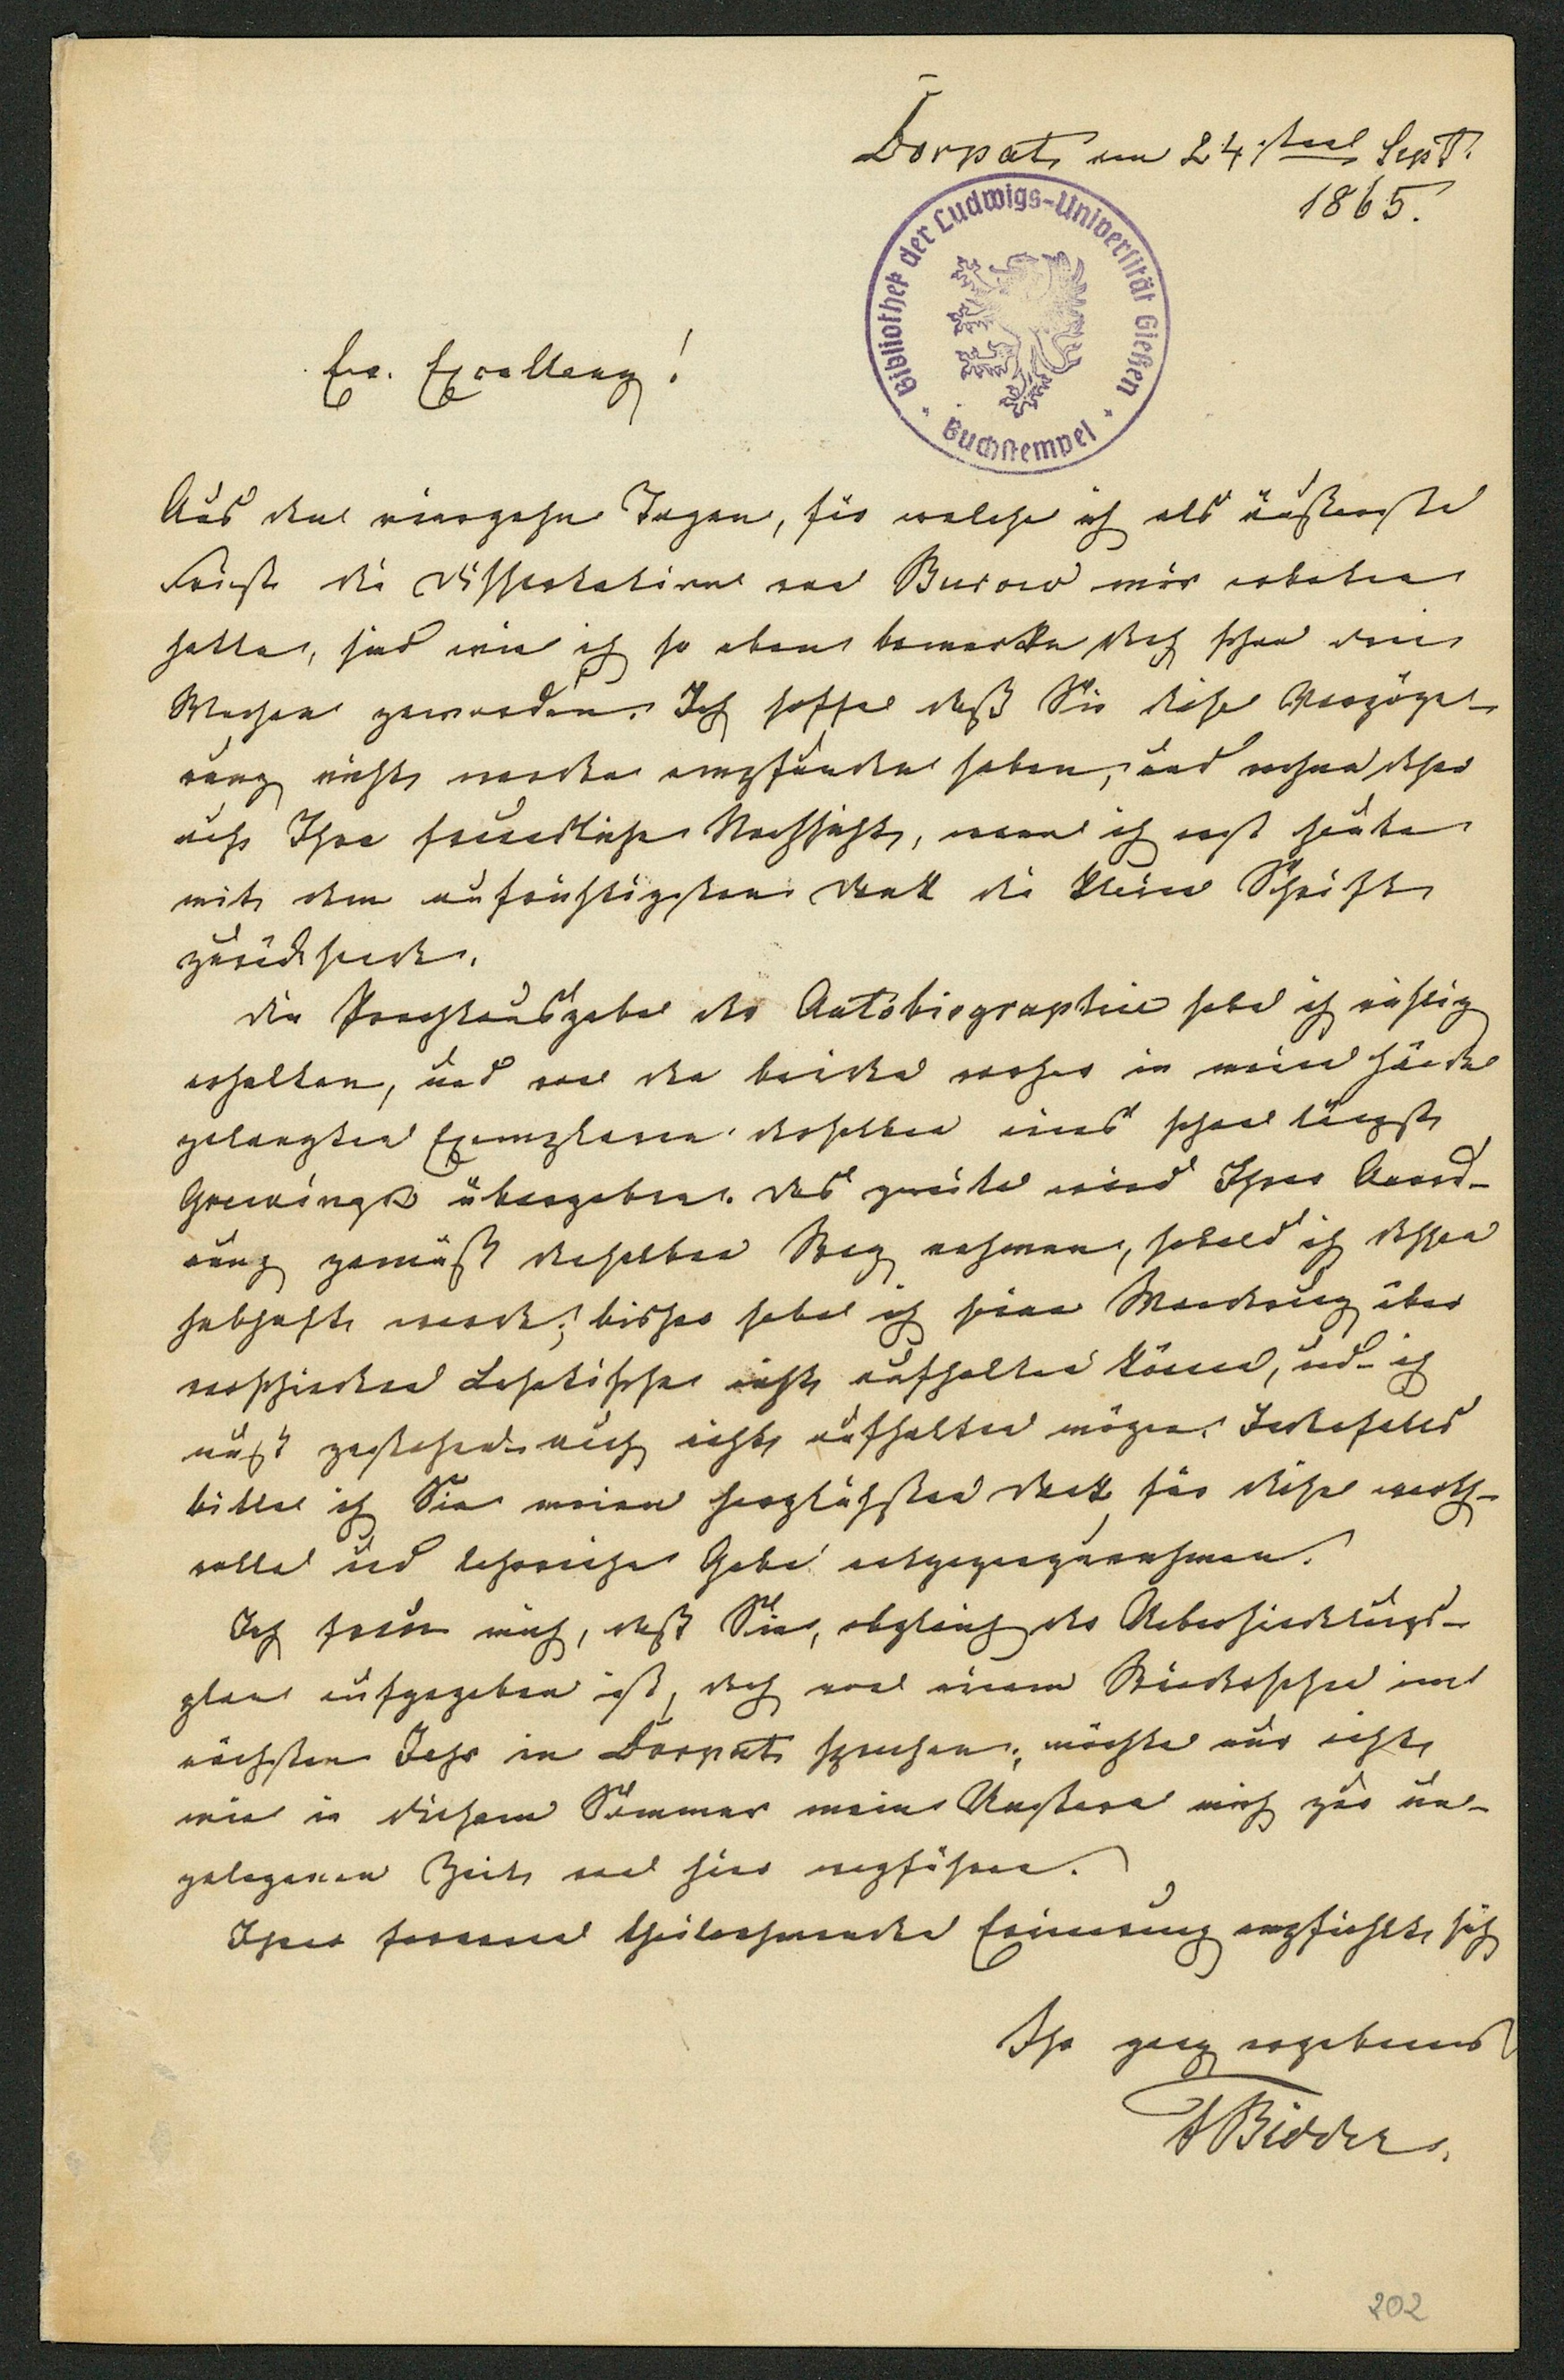 Dorpat am 24sten Sept.
1865.
Bibliothek der Ludwigs-Universität Gießen
Buchstempel
Ew. Excellenz!
Aus den vierzehn Tagen, für welche ich als äußerste
Frist die Dissertation von Bursow mir erbeten
hatte, sind wie ich so eben bemerke doch schon drei
Wochen geworden. Ich hoffe daß Sie diese Verzöge-
rung nicht werden empfunden haben, und rechne daher
auf Ihre freundliche Nachsicht, wenn ich erst heute
mit dem aufrichtigsten Dank die kleine Schrift
zurücksende.
Die Prachtausgabe der Autobiographie habe ich richtig
erhalten, und von den beiden vorher in meine Hände
gelangten Exemplaren derselben eines schon längst
Grewingk übergeben. Das zweite wird Ihrer Anord-
nung gemäß denselben Weg nehmen, sobald ich dessen
habhaft werde; bisher habe ich seine Wanderung über
verschiedene Lesetische nicht aufhalten können, und – ich
muß gestehen – auch nicht aufhalten mögen. Jedenfalls
bitte ich Sie meinen herzlichsten Dank für diese werth-
volle und lehrreiche Gabe entgegenzunehmen.
Ich freue mich, daß Sie, obgleich der Uebersiedelungs-
plan aufgegeben ist, doch von einem Wiedersehen im
nächsten Jahr in Dorpat sprechen; möchte nur nicht
wie in diesem Sommer mein Unstern mich zur un-
gelegenen Zeit von hier wegführen.
Ihrer ferneren theilnehmenden Erinnerung empfiehlt sich
Ihr ganz ergebener
F Bidder.
202